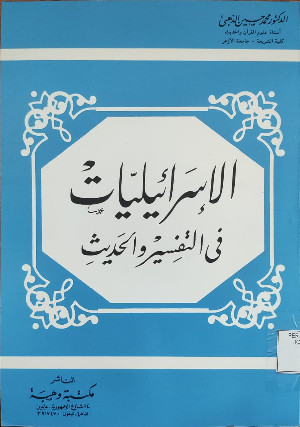 الدكتور محمد حسين الذهبي
أستاذ علوم القرآن والحديث
كلية الشريعة - جامعة الأزهر
الإسرائيليات
في التفسير والحديث
PER
K
الناشر
مكتبة وهبة
١٤ شارع الجمهورية، عابدين
القاهرة، تليفون ٣٩١٧٤٧٠